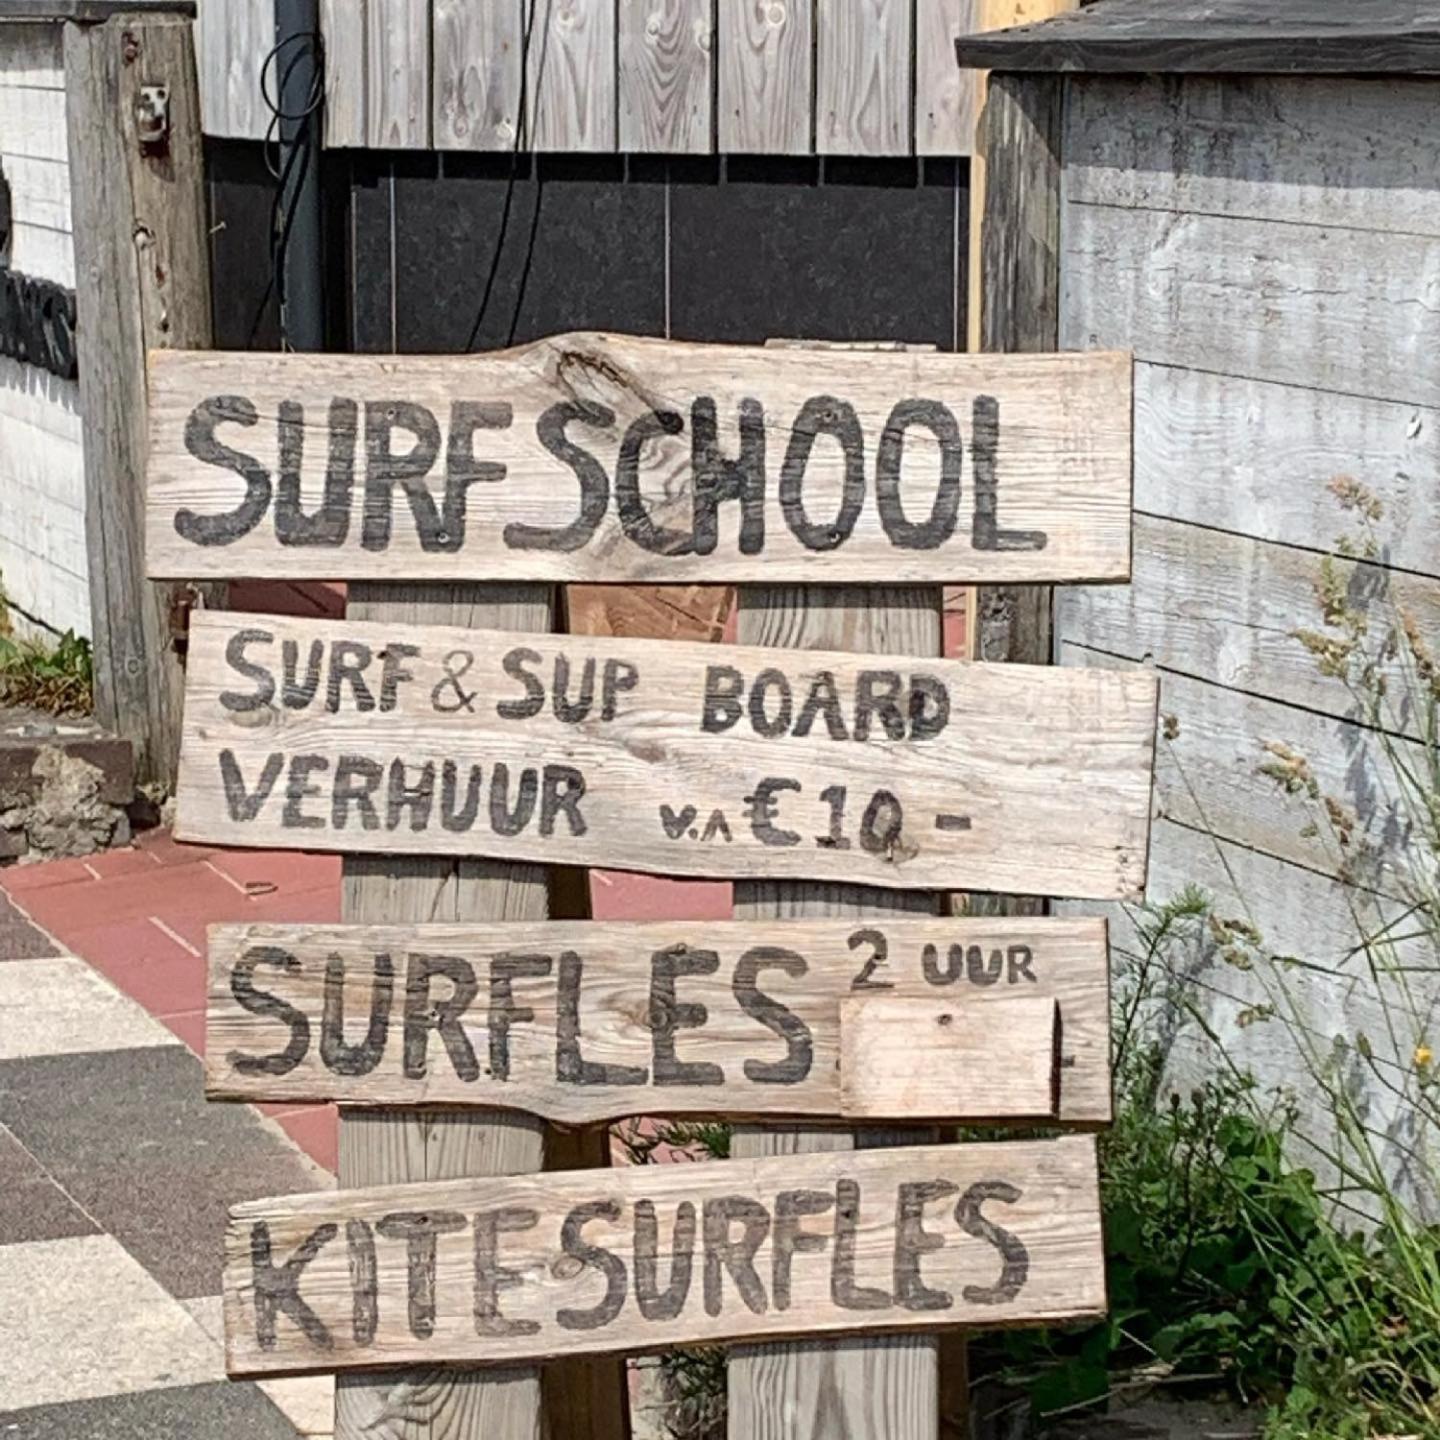 SURF SCHOOL
SURF & SUP BOARD
VERHUUR v.A €10,-
SURFLES 2 UUR
KITESURFLES